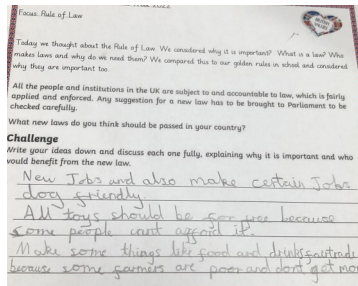 Focus: Rule of Law
Today we thought about the Rule of Law. We considered why it is important? What is a law? Who
makes laws and why do we need them? We compared this to our golden rules in school and considered
why they are important too.
All the people and institutions in the UK are subject to and accountable to law, which is fairly
applied and enforced. Any suggestion for a new law has to be brought to Parliament to be
checked carefully.
What new laws do you think should be passed in your country?
Challenge
Write your ideas down and discuss each one fully, explaining why it is important and who
would benefit from the new law.
New Jobs and also make certain Jobs
dog friendly
All toys should be for free because
some people cant afford it.
Make some things like food and drinks fairtrade
because some farmers are poor and dont get mon